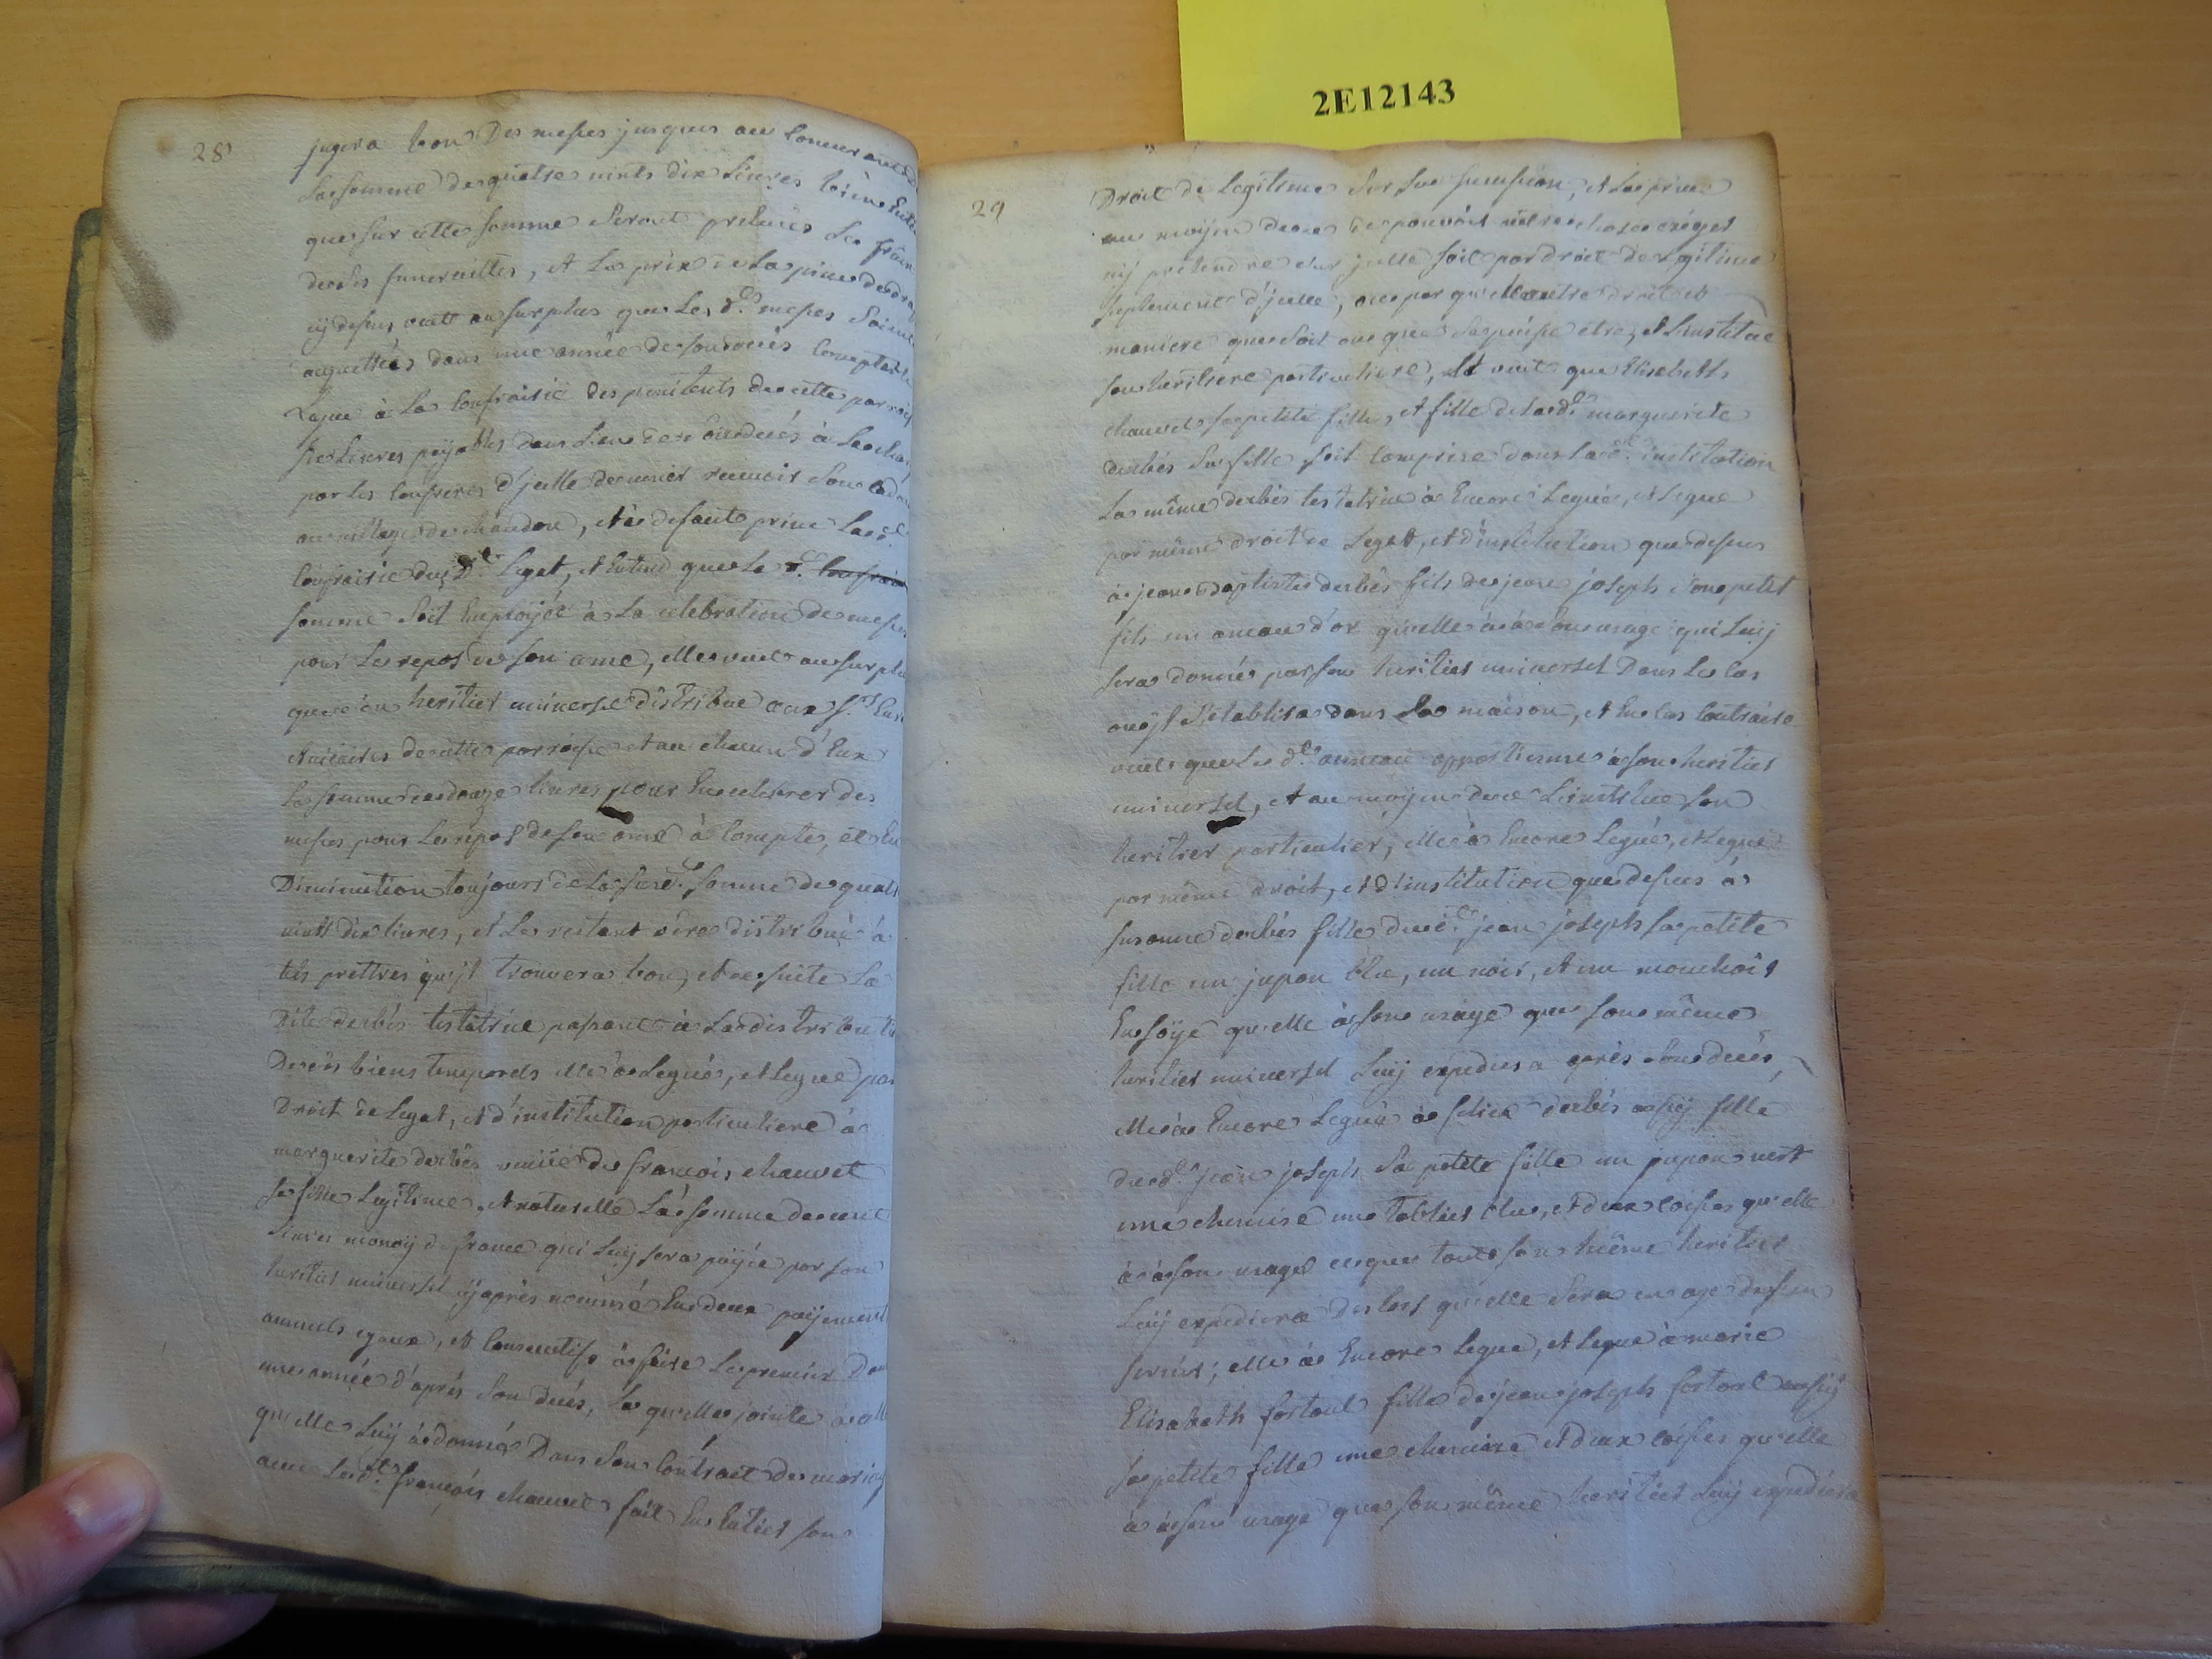 2E12143
28
jugera bon Des messes jusques au concurrant de
La somme de quatre vints dix Livres bien Enten
que sur cette somme seront prelevées Les frais
de ses funerailles, et Le prix de La piece de drap
cy dessus veut au surplus que Les d.es messes soient
acquittées dans une année de son deces comptable
Legue à La Confrairie des penitents de cette parroisse
six Livres payables dans L'an de son deces à La charge
par Les confreres d'icelle de venir recevoir son cada
au village de chaudon, et à defaut prive La d.e
Confrairie dud.t Leget, et Entend que La d.e confrairie
somme soit Employée à La celebration de messes
pour Le repos de son ame, elle veut au surplus
que son heritier universel distribue aux s.rs Curé
et vicaires de cette parroisse et au chacun d'Eux
La somme de douze livres pour En celebrer des
messes pour Le repos de son ame à compte, et En
Diminution toujours de La susd.e somme de quatre
vints dix livres, et Le restant sera distribué à
tels prettres qu'jl trouvera bon, et de suite La
Dite derbés testatrice passant à La distribution
De ses biens temporels elle a Legué, et Legue par
Droit de Legat, et d'institution particuliere à
marguerite derbés veuve de françois chauvet
sa fille Legitime, et naturelle La somme de cent
Livres monoy de france qui Luy sera payée par son
heritier universel cy après nommé En deux payements
annuels egaux, et consecutifs à faire Le premier Dans
une année d'après son decés, La quelle jointe à celle
qu'elle Luy a donné Dans son contract de mariage
avec Led.t françois chauvet fait En Entier son
29
Droit de Legitime sur sa succession, et La prive
au moyen de ce de pouvoir autre chose exiger
ny pretendre sur jcelle soit par droit de Legitime
suplement d'jcelle, ou par quel autre droit et
maniere que soit ou que se puisse etre, et L'institue
son heritiere particuliere, et veut que Elisabeth
chauvet sa petite fille, et fille de lad.e marguerite
derbés sa fille soit comprise dans lad.e institution
La même derbés testatrice à Encore Legué, et Legue
par même droit de Legat, et d'institution que dessus
à jean baptiste derbés fils de jean joseph son petit
fils un aneau d'or qu'elle a à son usage qui Luy
sera donné par son heritier universel Dans Le cas
ou jl s'établira dans La maison, et En cas contraire
veut que Le d.t anneau appartienne à son heritier
universel, et au moyen de ce L'institue son
heritier particulier, elle a Encore Legué, et Legue
par même droit, et d'institution que dessus à
susanne derbés fille dud.t jean joseph sa petite
fille un jupon blu, un noir, et un mouchoir
En soye qu'elle a à son usage que son même
heritier universel Luy expediera après son decés,
elle à Encore Legué à felice derbés aussy fille
dud.t jean joseph sa petite fille un jupon vert
une chemise une tablier blu, et deux coiffes qu'elle
a à son usage ce que tout son même heritier
Luy expediera Des lors qu'elle sera en age de s'en
servir; elle à Encore Legue, et Legue à marie
Elisabeth fortoul fille de jean joseph fortoul aussy
sa petite fille une chemise et deux coiffes qu'elle
a à son usage que son même heritier Luy expediera